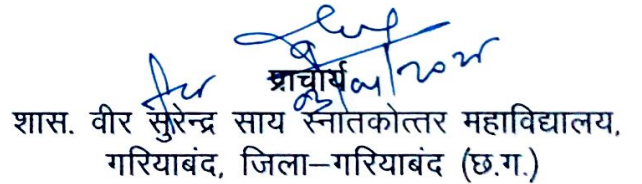 प्राचार्य
शास. वीर सुरेन्द्र साय स्नातकोत्तर महाविद्यालय,
गरियाबंद, जिला–गरियाबंद (छ.ग.)